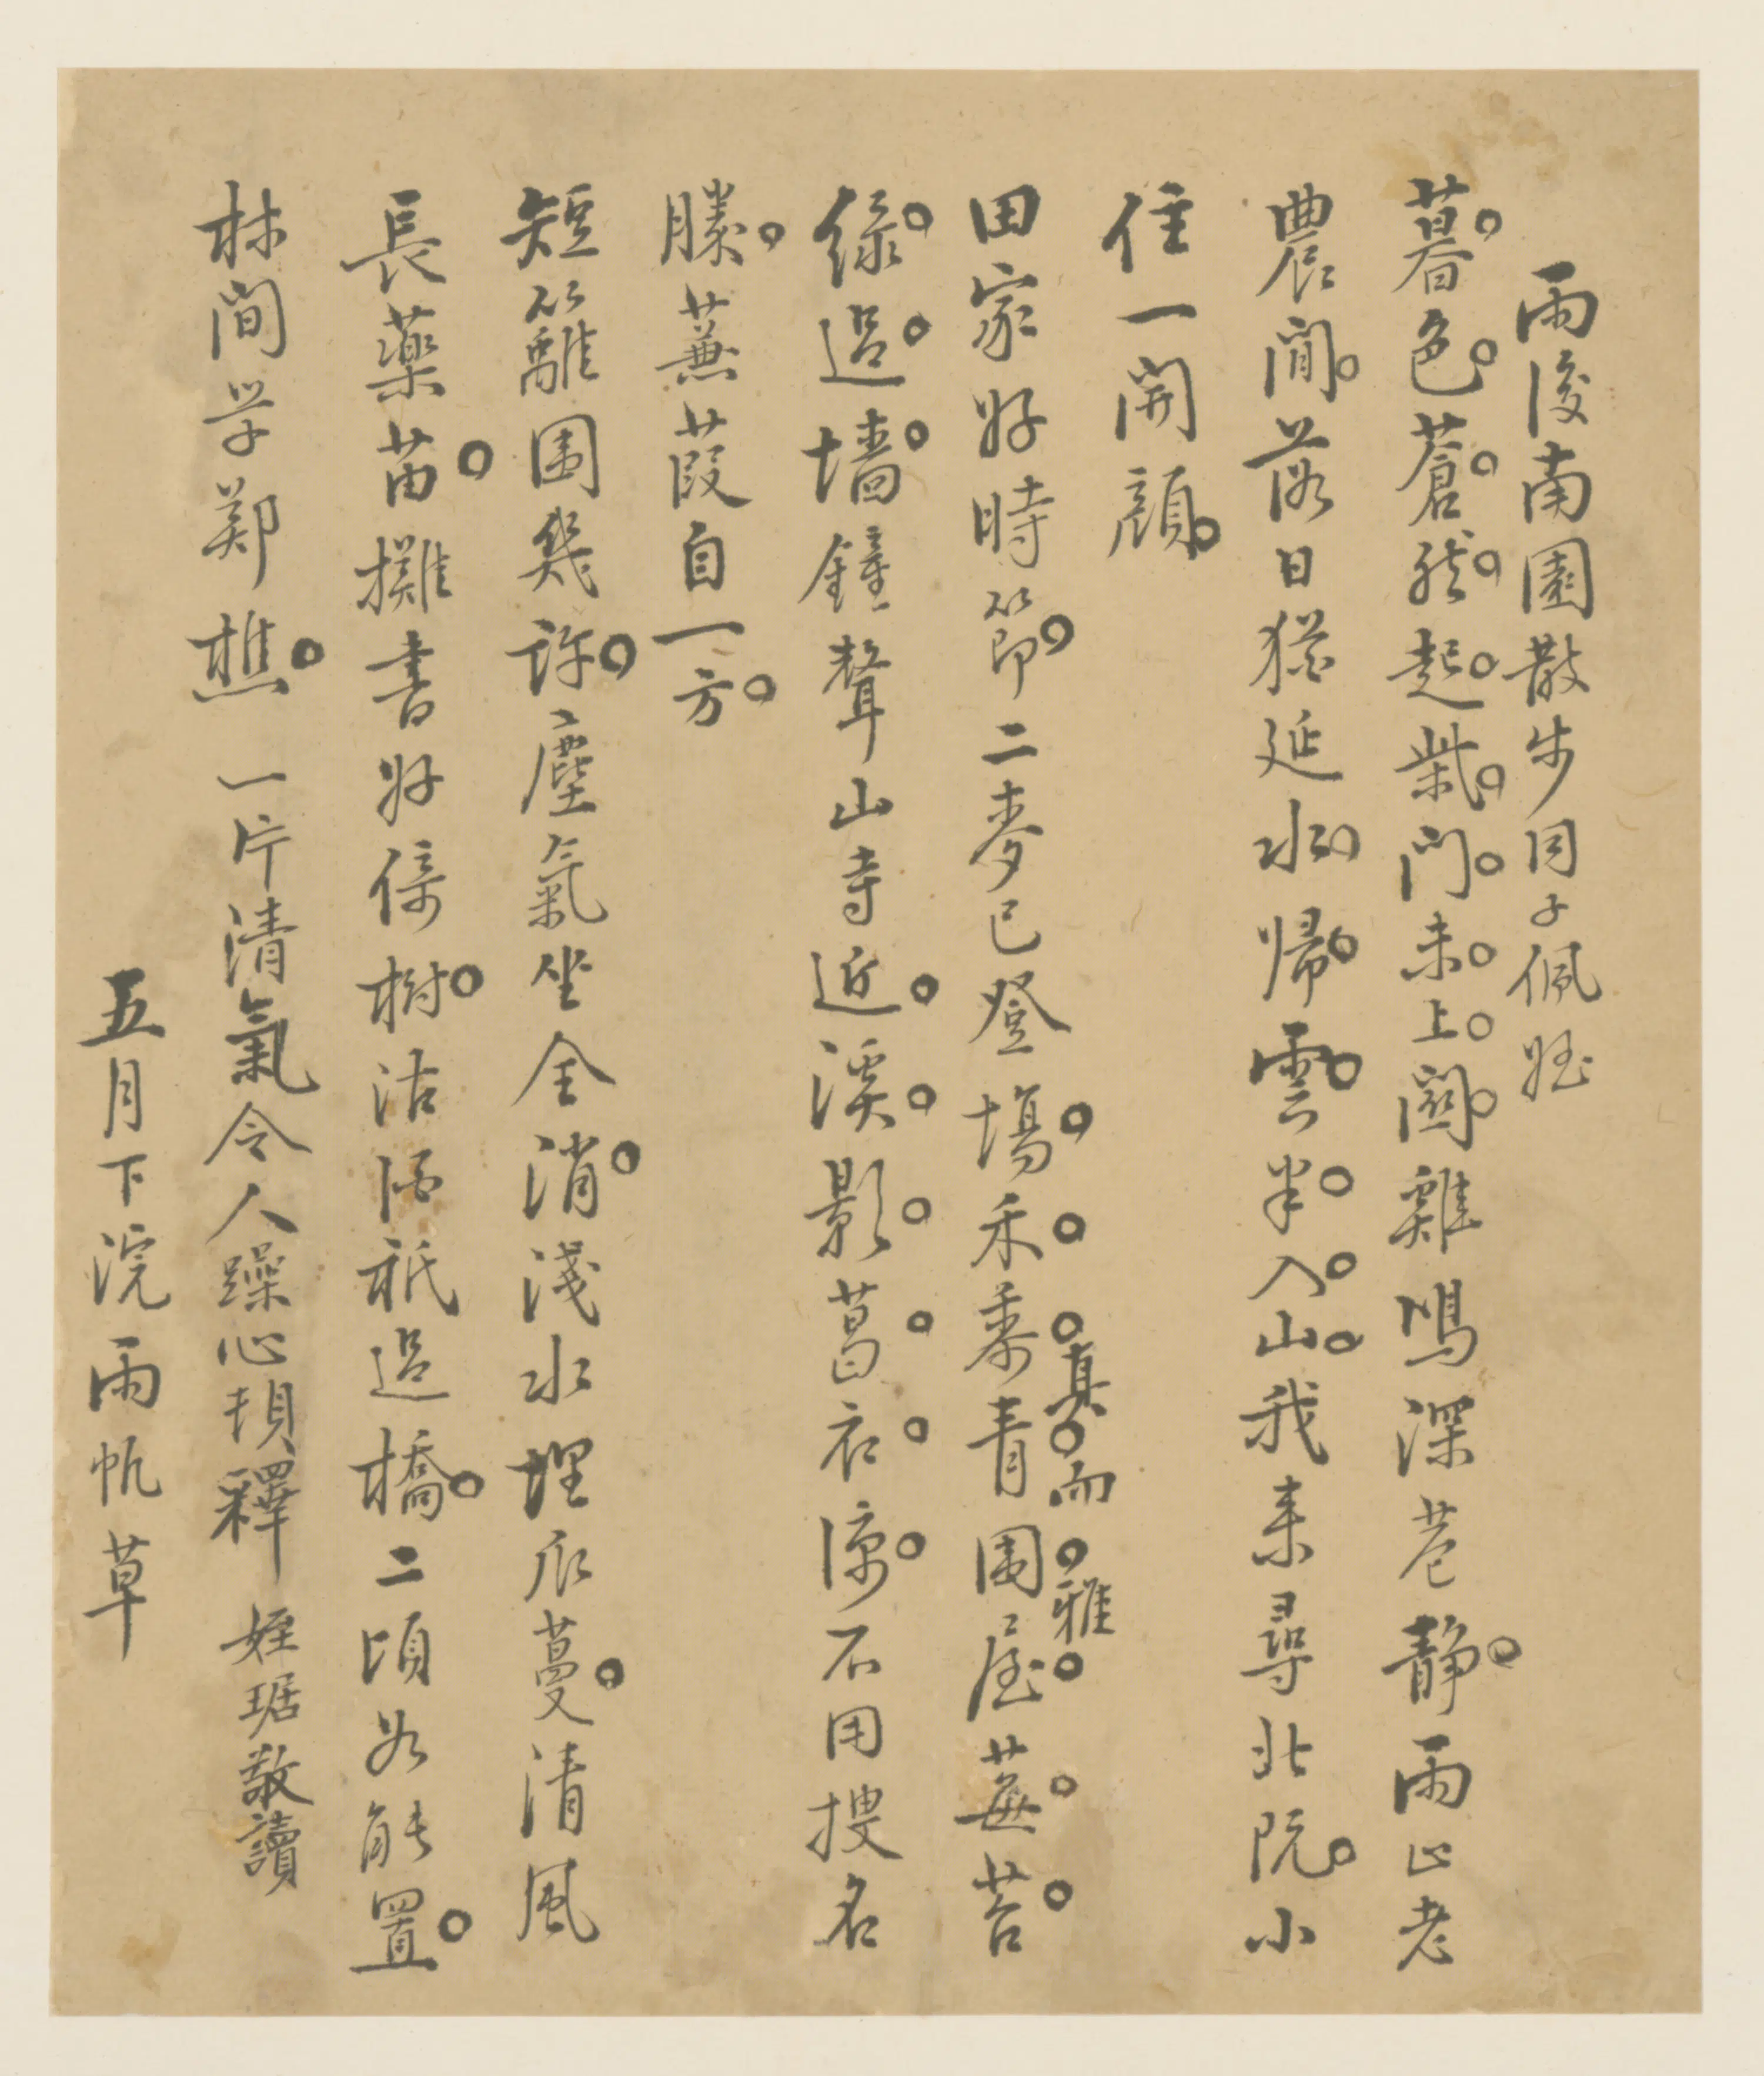 雨後南園散步同子佩姪
暮色蒼然起柴門未上關雞鳴深巷靜雨止老
農閒落日猶延水歸雲半入山我来尋北阮小
住一開顏
田家好時節二麥已登場禾黍青圍屋蕪苔
真而雅
綠過墻鐘聲山寺近溪影葛衣涼不用搜名
勝蒹葭自一方
短籬圍幾許塵氣坐全消淺水埋瓜蔓清風
長藥苗攤書好倚樹沽酒祇過橋二頃如能置
林間学鄭樵 一片清氣令人躁心頓釋 姪琚敬讀
五月下浣雨帆草